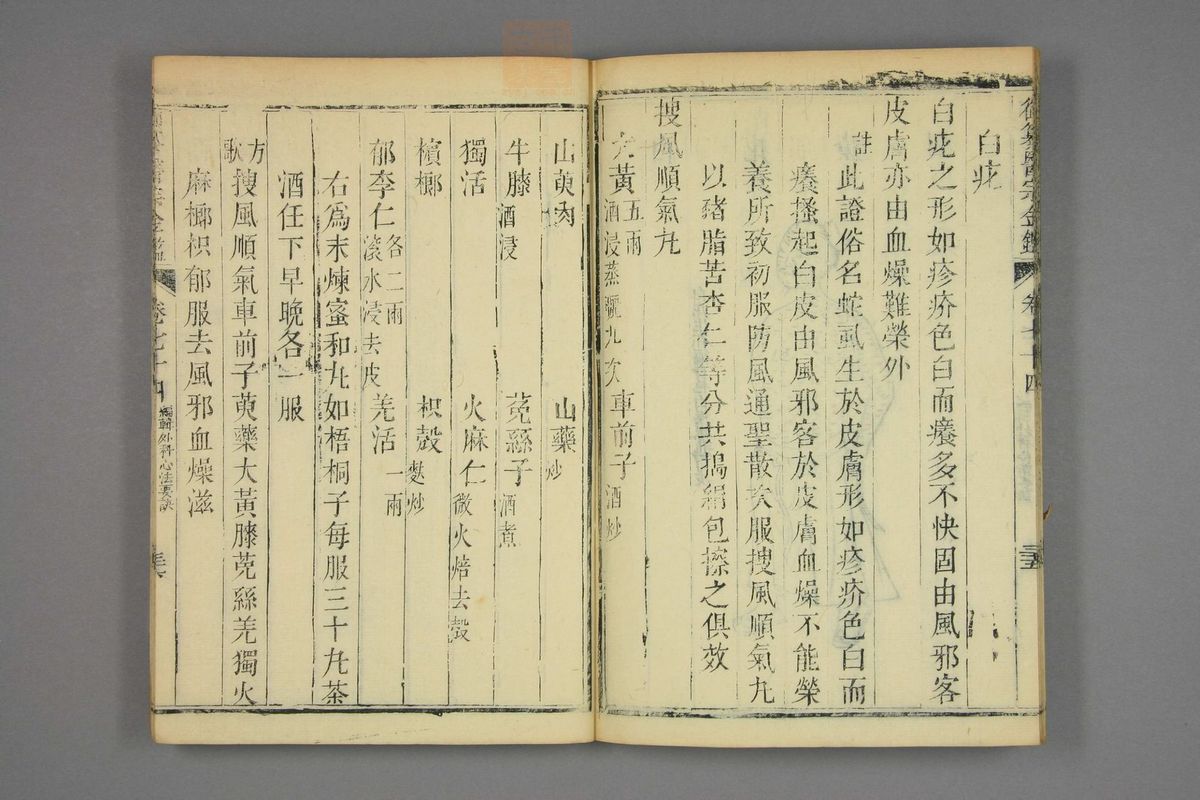 御纂醫宗金鑑 卷七十四 三五
白疕
白疕之形如疹疥色白而癢多不快固由風邪客
皮膚亦由血燥難榮外
註此證俗名蛇虱生於皮膚形如疹疥色白而
癢搔起白皮由風邪客於皮膚血燥不能榮
養所致初服防風通聖散次服搜風順氣九
以豬脂苦杏仁等分共搗絹包擦之俱效
搜風順氣九
大黃五兩酒浸蒸曬九次 車前子酒炒
山萸肉 山藥炒
牛膝酒浸 菟絲子酒煮
獨活 火麻仁微火焙去殼
檳榔 枳殼麩炒
郁李仁各二兩滾水浸去皮 羌活一兩
右為末煉蜜和九如梧桐子每服三十九茶
酒任下早晚各一服
方歌搜風順氣車前子萸藥大黃膝菟絲羌獨火
麻榔枳郁服去風邪血燥滋
卷七十四 編輯外科心法要訣